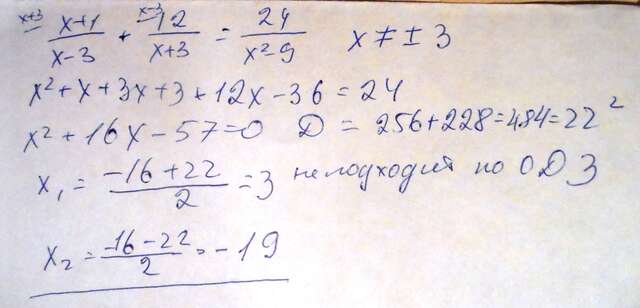 x+3) x+1/x-3 + x-3) 12/x+3 = 24/x²-9 x ≠ ± 3
x² + x + 3x + 3 + 12x - 36 = 24
x² + 16x - 57 = 0 D = 256 + 228 = 484 = 22²
x₁ = -16 + 22/2 = 3 не подходит по ОДЗ
x₂ = -16 - 22/2 = -19